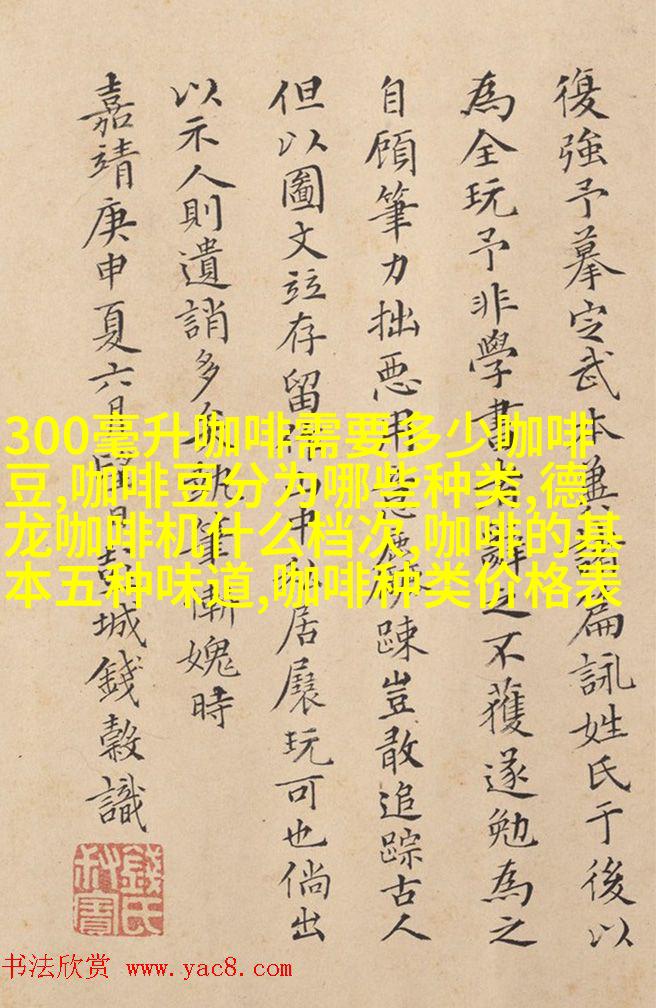 復強予摹定武本兼扁詠姓氏于後以
為全玩予非學書者辭之不獲遂勉為之
自顧筆力拙惡用意踈豈敢追踪古人
但以圖文竝存留中私居展玩可也倘出
以示人則遺誚多矣執筆慚媿時
嘉靖庚申夏六月日彭城錢穀識
錢氏叔寶
300毫升咖啡需要多少咖啡
豆,咖啡豆分为哪些种类,德
龙咖啡机什么档次,咖啡的基
本五种味道,咖啡种类价格表
书法欣赏 www.yac8.com